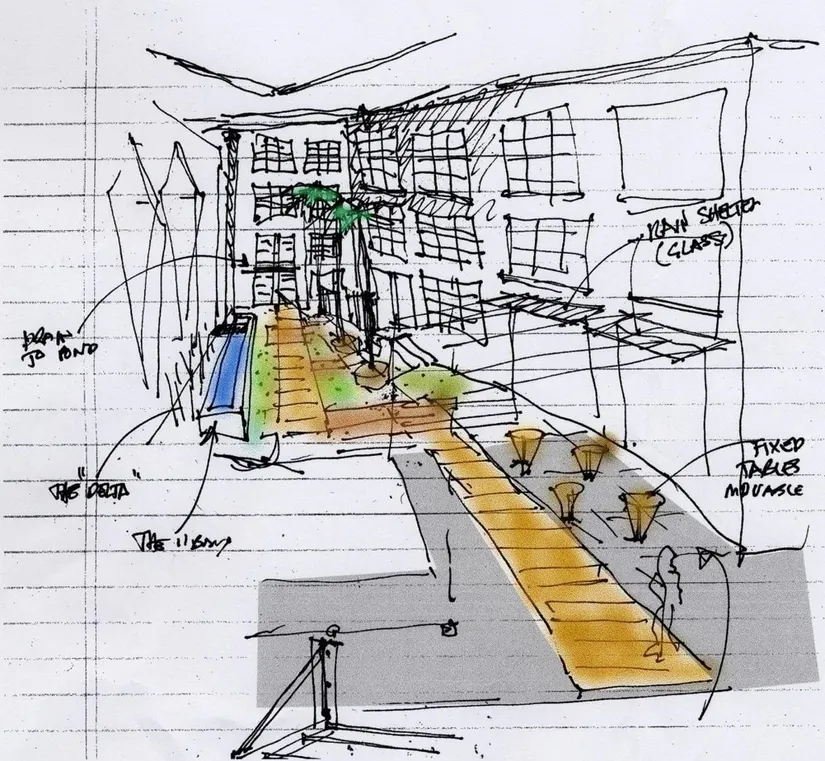 RAIN SHELTER
(GLASS)
DRAIN
TO POND
FIXED
TABLES
MOVABLE
THE "DELTA"
THE